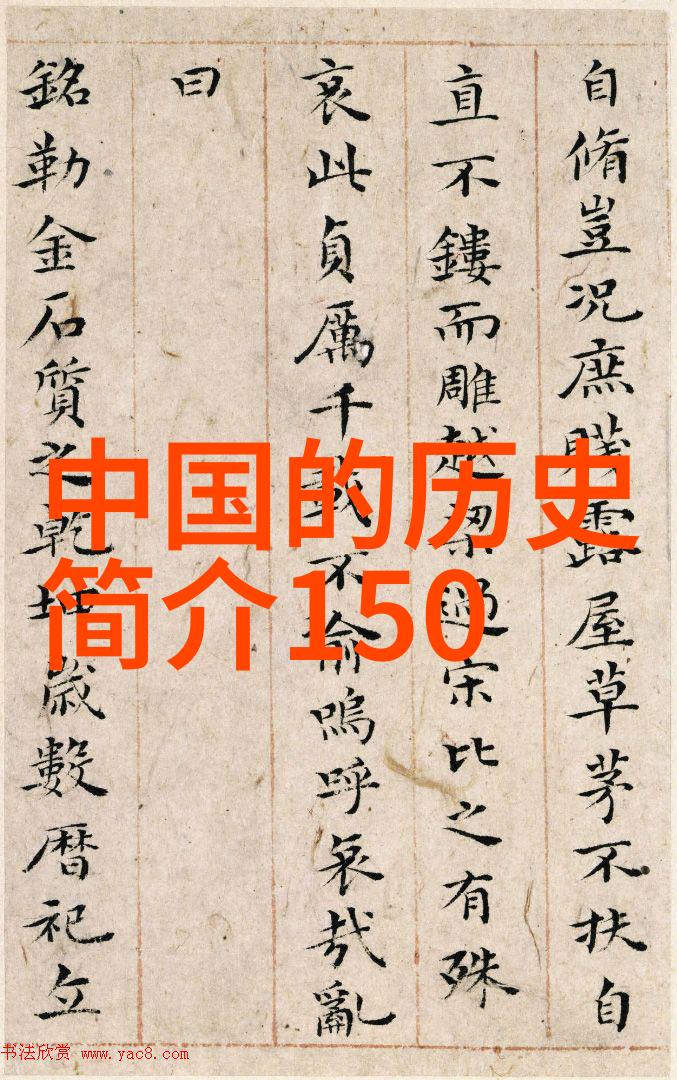 自脩豈况庶賤露屋草茅不扶自
直不鏤而雕越梁過宋比之有殊
哀此貞厲千載不渝嗚呼哀哉亂
曰
銘勒金石質之乾坤歲數暦祀立
中国的历史
简介150
书法欣赏 www.yac8.com